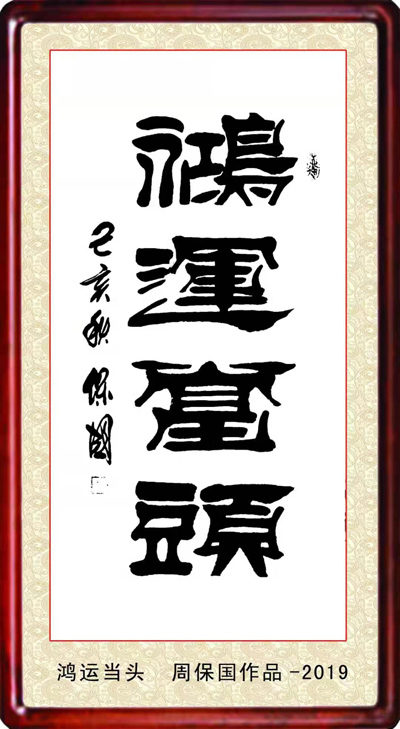 鴻運當頭
己亥秋 保國
鸿运当头 周保国作品-2019